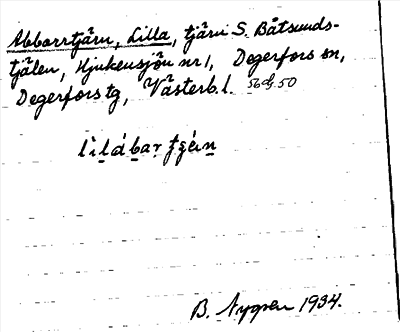 Abborrtjärn, Lilla, tjärn S. Båtsunds-
tjälen, Hjukensjön nr 1, Degerfors sn,
Degerfors tg, Västerb. l. 56 G. 50
lìlábar
B. Nygren 1934.